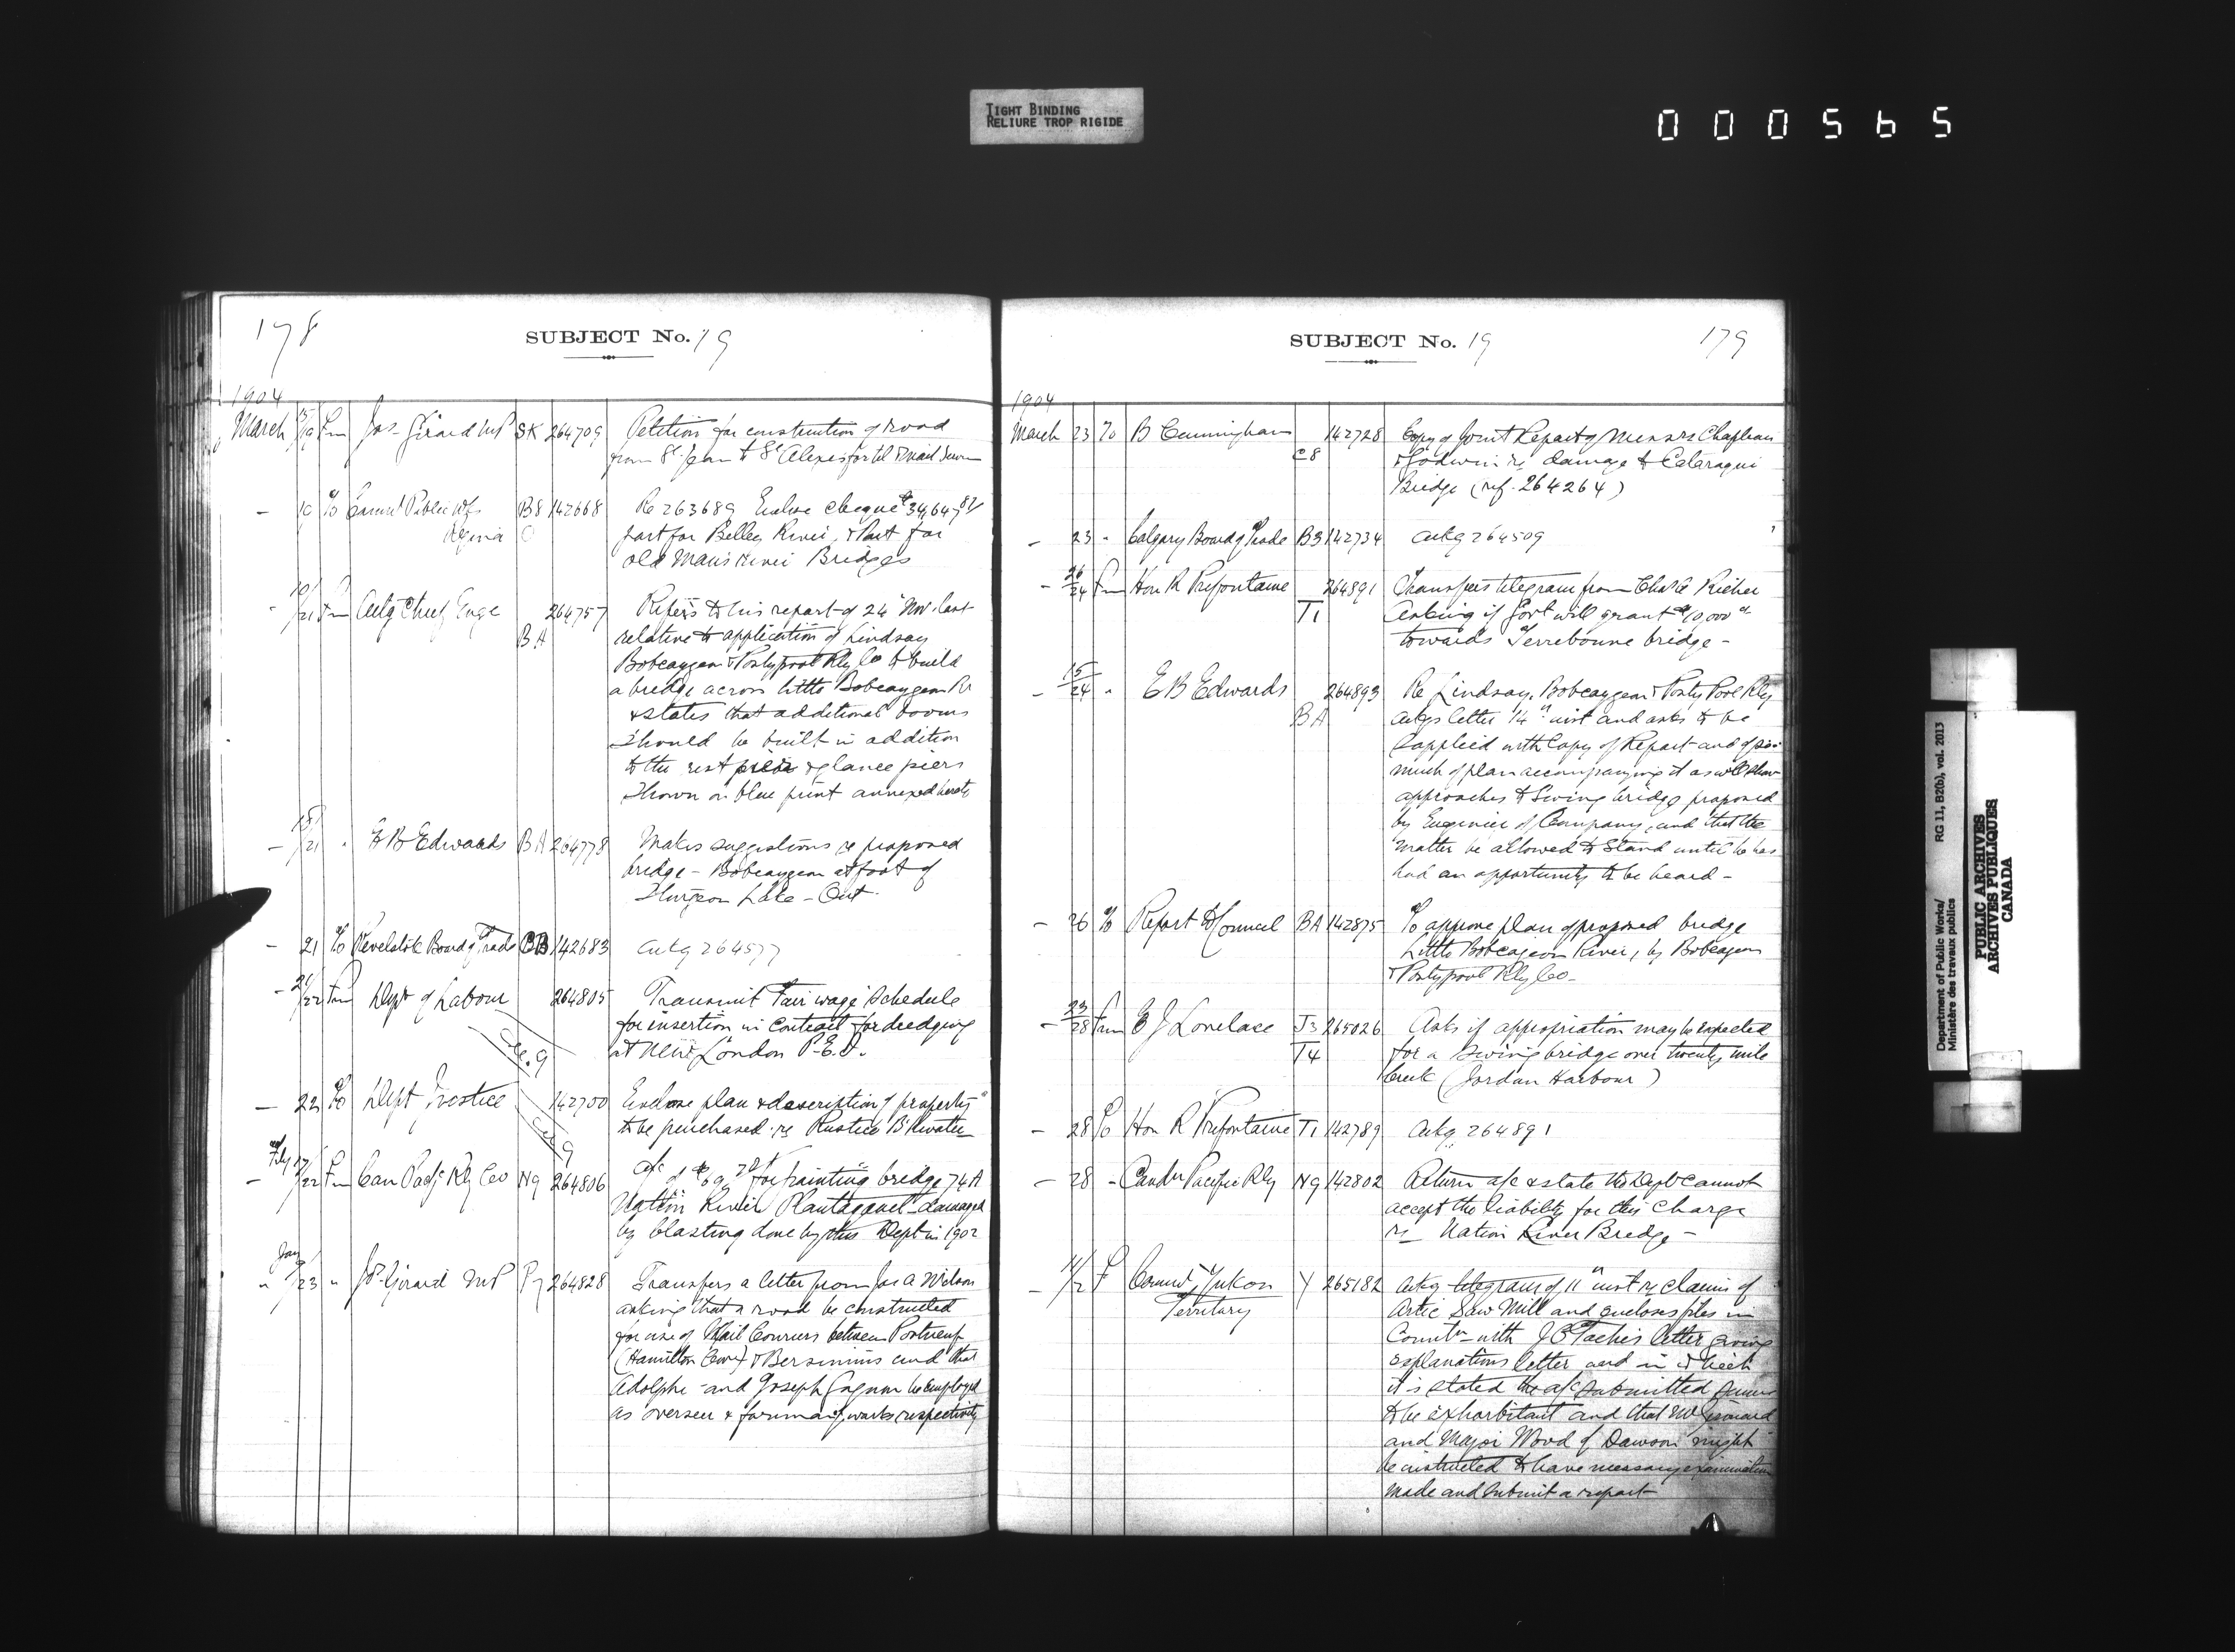 TIGHT BINDING
RELIURE TROP RIGIDE
000565
178
SUBJECT No. 19
1904
March 15/19 Fm Jas Girard MP SK 264709 Petition for construction of road
from St Jean to St Alexis for tel & mail
- 19 To Commr Public Wks B8 142668 Re 263689 Enclose cheque $34,647
Regina O part for Belley River, & Part for
old Mans River Bridges
- 19/21 Fm Actg Chief Engr 264757 Refers to his report of 24 Nov. last
BA relative to application of Lindsay
Bobcaygeon & Pontypool Rly Co to build
a bridge across little Bobcaygeon Rr
& states that additional booms
should be built in addition
to the rest piers & glance piers
shown on blue print annexed hereto
- 18/21 " E B Edwards BA 264778 Makes suggestions re proposed
bridge - Bobcaygeon at foot of
Sturgeon Lake - Ont.
- 21 To Revelstoke Board of Trade BB 142683 ackg 264577
- 21/22 Fm Dept of Labour 264805 Transmit Fair wage Schedule
for insertion in contract for dredging
at New London P.E.I.
- 22 To Dept Justice 142700 Enclose plan & description of property
to be purchased re Rustico B'kwater
- Feby 17/22 Fm Can Pacific Rly Co N9 264806 a/c of $69 for painting bridge 74A
Nation River Plantagenet - damaged
by blasting done by this Dept in 1902
Jany
" /23 " Jos Girard MP P7 264828 Transfers a letter from Jas A Wilson
asking that a road be constructed
for use of Mail Couriers between Portneuf
(Hamilton Cove) & Bersimis and that
Adolphe and Joseph Gagnon be employed
as overseer & foreman of works respectively
SUBJECT No. 19
179
1904
March 23 To B Cunningham 142728 Copy of Joint Report of Messrs Chapleau
C8 & Godwin re damage to Cataraqui
Bridge (ref. 264264)
- 23 - Calgary Board of Trade B3 142734 ackg 264509
- 26/24 Fm Hon R Prefontaine 264891 Transfers telegram from Chas Richer
T1 Asking if Govt will grant $10,000
towards Terrebonne bridge -
- 15/24 " E B Edwards 264893 Re Lindsay, Bobcaygeon & Ponty Pool Rly
BA ackgs letter 14th inst and asks to be
supplied with Copy of Report and of so
much of plan accompanying it as will show
approaches to Swing bridge proposed
by Engineer of Company, and that the
matter be allowed to Stand until he has
had an opportunity to be heard -
- 26 To Report to Council BA 142875 To approve plan of proposed bridge
Little Bobcaygeon River, by Bobcaygeon
& Pontypool Rly Co -
- 23/28 Fm E J Lovelace J3 265026 Asks if appropriation may be expected
T4 for a swing bridge over twenty mile
Creek (Jordan Harbour)
- 28 To Hon R Prefontaine T1 142789 Ackg 264891
- 28 - Candn Pacific Rly N9 142802 Return a/c & state the Dept cannot
accept the liability for this charge
re Nation River Bridge -
- F Commr Yukon Y 265182 Ackg telegram of 11th inst re claim of
Territory Artic Saw Mill and encloses files in
with J C Taché's letter giving
explanations letter and in which
it is stated the a/c submitted seems
to be exhorbitant and that Mr
and Major Wood of Dawson might
be instructed to have necessary examination
made and submit a report
Department of Public Works/
Ministère des travaux publics
RG 11, B2(b), vol. 2013
PUBLIC ARCHIVES
ARCHIVES PUBLIQUES
CANADA